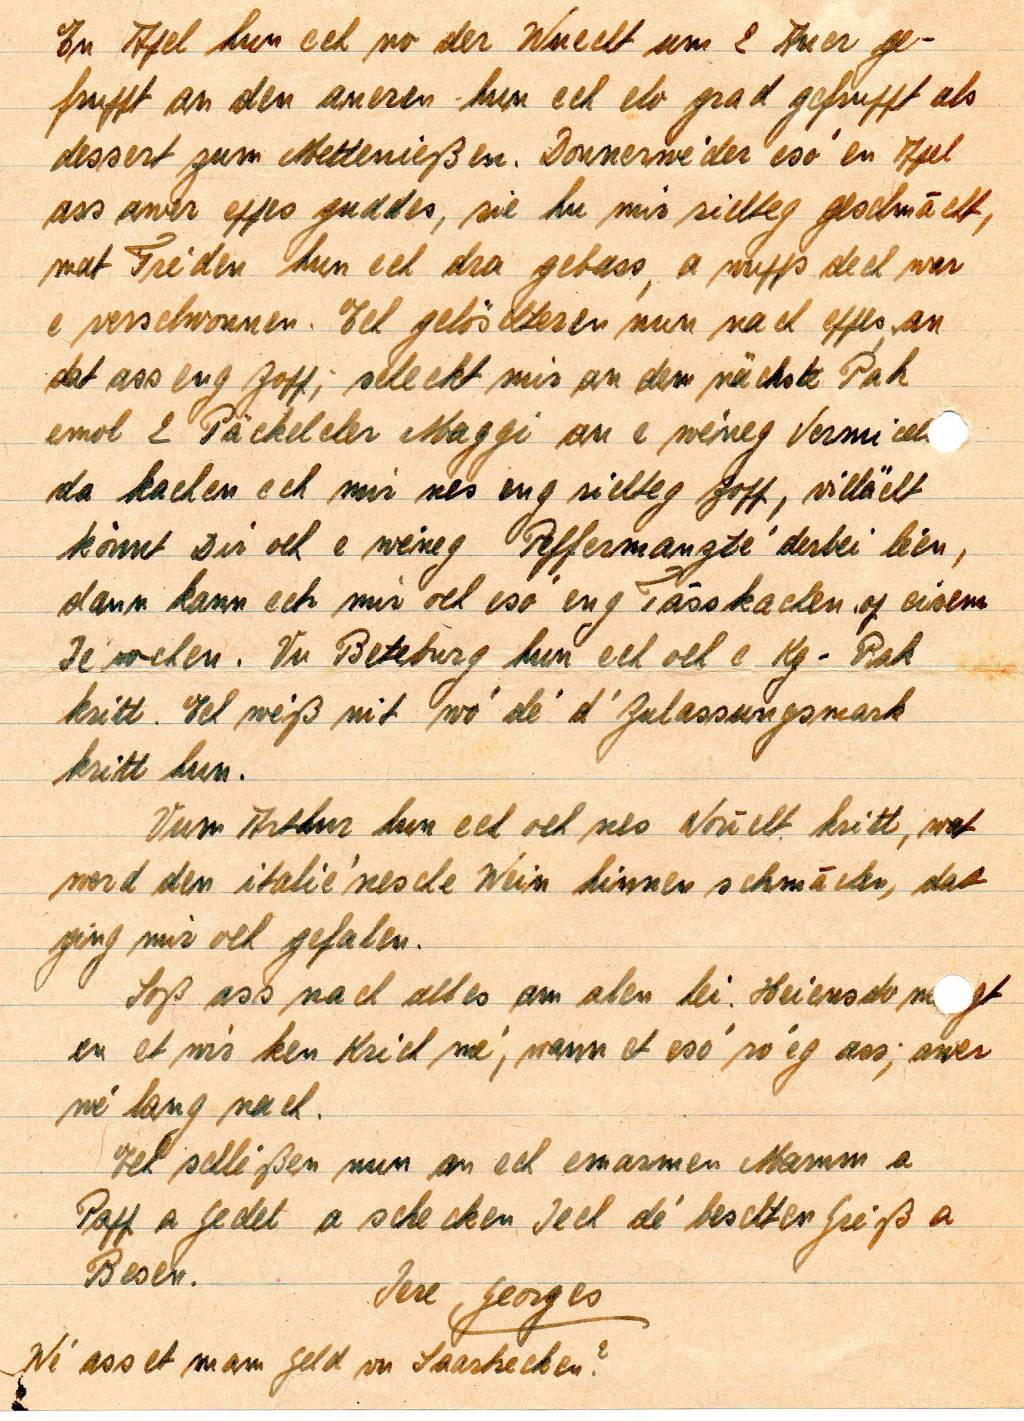 En Apel hun ech no der Wuecht um 2 Auer ge-
frupft an den aneren hun ech elo grad gefrupft als
dessert zum Mettenießen. Donnerwéder esó en Apel
ass awer eppes guddes, sie hu mir richteg geschmācht,
wat Freiden hun ech dra gebass, a wupps dech war
e verschwonnen. Ech gelöschteren nun nach eppes, an
dat ass eng Zopp; scheckt mir an dem nächste Pak
emol 2 Päckelcher Maggi an e wéneg
da kachen ech mir nes eng richteg Zopp, villäicht
könnt Dir och e wéneg Peffermanzté derbei léen,
dann kann ech mir och esó eng Tásskachen op eisem
. Vu Beteburg hun ech och e Kg-Pak
kritt. Ech weiß nit wó dé d'Zulassungsmark
kritt hun.
Vum Arthur hun ech och nes Noūcht kritt, wat
word den italiénesche Wein hinnen schmāchen, dat
ging mir och gefalen.
Soß ass nach alles am alen hei.
en et wir ken Krich mé, wann et esó róeg ass; awer
wé lang nach.
Ech schléißen nun an ech emarmen Mamm a
Papp a Gedet a schecken Iech dé beschten Gréiß a
Besen.
Iere Georges
Wé ass et mam Geld vu Saarbrecken?